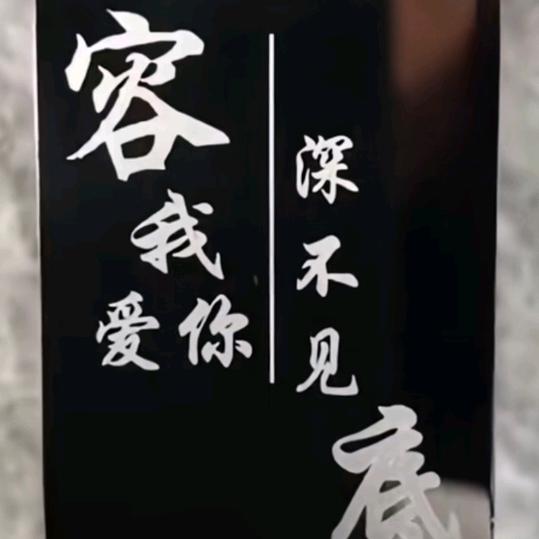 容我爱你
深不见底